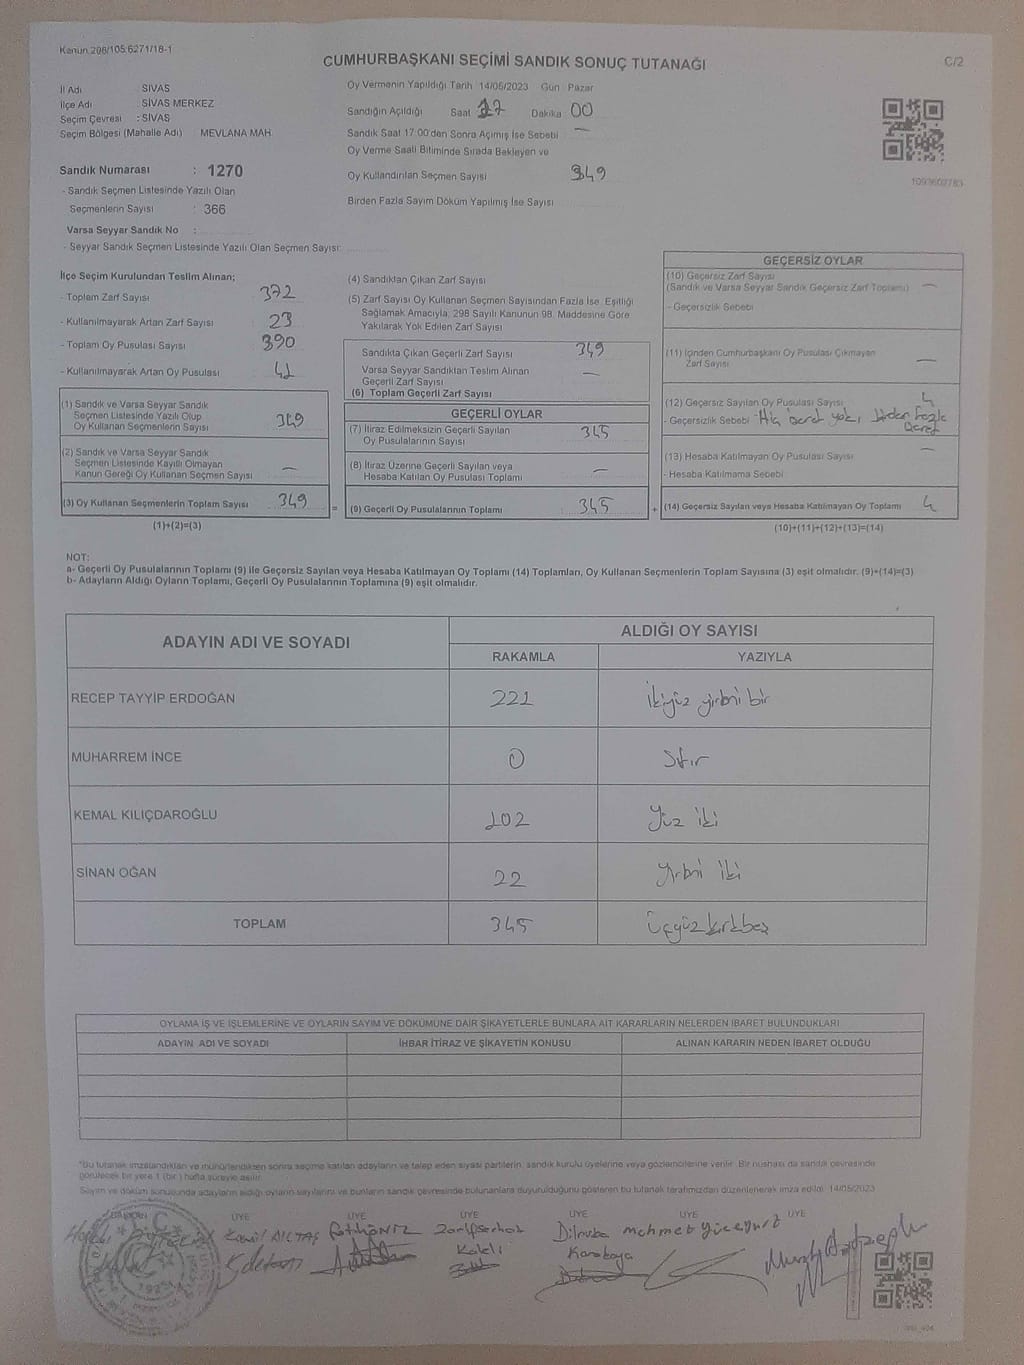 Kanun 298/105 6271/18-1
CUMHURBAŞKANI SEÇİMİ SANDIK SONUÇ TUTANAĞI
C/2
İl Adı SİVAS
İlçe Adı SİVAS MERKEZ
Seçim Çevresi : SİVAS
Seçim Bölgesi (Mahalle Adı) MEVLANA MAH.
Oy Vermenin Yapıldığı Tarih 14/05/2023 Gün Pazar
Sandığın Açıldığı Saat 17 Dakika 00
Sandık Saat 17:00'den Sonra Açımış İse Sebebi —
Oy Verme Saati Bitiminde Sırada Bekleyen ve
Oy Kullandırılan Seçmen Sayısı 349
Birden Fazla Sayım Döküm Yapılmış İse Sayısı
1093602783
Sandık Numarası : 1270
- Sandık Seçmen Listesinde Yazılı Olan
Seçmenlerin Sayısı : 366
Varsa Seyyar Sandık No :
- Seyyar Sandık Seçmen Listesinde Yazılı Olan Seçmen Sayısı:
İlçe Seçim Kurulundan Teslim Alınan;
- Toplam Zarf Sayısı 372
- Kullanılmayarak Artan Zarf Sayısı 23
- Toplam Oy Pusulası Sayısı 390
- Kullanılmayarak Artan Oy Pusulası 41
(1) Sandık ve Varsa Seyyar Sandık
Seçmen Listesinde Yazılı Olup
Oy Kullanan Seçmenlerin Sayısı 349
(2) Sandık ve Varsa Seyyar Sandık
Seçmen Listesinde Kayıtlı Olmayan
Kanun Gereği Oy Kullanan Seçmen Sayısı —
(3) Oy Kullanan Seçmenlerin Toplam Sayısı 349
(1)+(2)=(3)
(4) Sandıktan Çıkan Zarf Sayısı
(5) Zarf Sayısı Oy Kullanan Seçmen Sayısından Fazla İse, Eşitliği
Sağlamak Amacıyla, 298 Sayılı Kanunun 98. Maddesine Göre
Yakılarak Yok Edilen Zarf Sayısı
Sandıkta Çıkan Geçerli Zarf Sayısı 349
Varsa Seyyar Sandıktan Teslim Alınan
Geçerli Zarf Sayısı —
(6) Toplam Geçerli Zarf Sayısı
GEÇERLİ OYLAR
(7) İtiraz Edilmeksizin Geçerli Sayılan
Oy Pusulalarının Sayısı 345
(8) İtiraz Üzerine Geçerli Sayılan veya
Hesaba Katılan Oy Pusulası Toplamı —
= (9) Geçerli Oy Pusulalarının Toplamı 345
GEÇERSİZ OYLAR
(10) Geçersiz Zarf Sayısı
(Sandık ve Varsa Seyyar Sandık Geçersiz Zarf Toplamı) —
- Geçersizlik Sebebi
(11) İçinden Cumhurbaşkanı Oy Pusulası Çıkmayan
Zarf Sayısı —
(12) Geçersiz Sayılan Oy Pusulası Sayısı 4
- Geçersizlik Sebebi Hiç işaret yok, birden fazla
işaret
(13) Hesaba Katılmayan Oy Pusulası Sayısı —
- Hesaba Katılmama Sebebi
+ (14) Geçersiz Sayılan veya Hesaba Katılmayan Oy Toplamı 4
(10)+(11)+(12)+(13)=(14)
NOT:
a- Geçerli Oy Pusulalarının Toplamı (9) ile Geçersiz Sayılan veya Hesaba Katılmayan Oy Toplamı (14) Toplamları, Oy Kullanan Seçmenlerin Toplam Sayısına (3) eşit olmalıdır. (9)+(14)=(3)
b- Adayların Aldığı Oyların Toplamı, Geçerli Oy Pusulalarının Toplamına (9) eşit olmalıdır.
ADAYIN ADI VE SOYADI
ALDIĞI OY SAYISI
RAKAMLA YAZIYLA
RECEP TAYYİP ERDOĞAN 221 İkiyüz yirmi bir
MUHARREM İNCE 0 Sıfır
KEMAL KILIÇDAROĞLU 102 Yüz iki
SİNAN OĞAN 22 Yirmi iki
TOPLAM 345 Üçyüzkırkbeş
OYLAMA İŞ VE İŞLEMLERİNE VE OYLARIN SAYIM VE DÖKÜMÜNE DAİR ŞİKAYETLERLE BUNLARA AİT KARARLARIN NELERDEN İBARET BULUNDUKLARI
ADAYIN ADI VE SOYADI İHBAR İTİRAZ VE ŞİKAYETİN KONUSU ALINAN KARARIN NEDEN İBARET OLDUĞU
*Bu tutanak imzalandıktan ve mühürlendikten sonra seçime katılan adayların ve talep eden siyasi partilerin, sandık kurulu üyelerine veya gözlemcilerine verilir. Bir nüshası da sandık çevresinde
görülecek bir yere 1 (bir ) hafta süreyle asılır.
Sayım ve döküm sonucunda adayların aldığı oyların sayılarını ve bunların sandık çevresinde bulunanlara duyurulduğunu gösteren bu tutanak tarafımızdan düzenlenerek imza edildi. 14/05/2023
BAŞKAN ÜYE ÜYE ÜYE ÜYE ÜYE ÜYE
Dilruba Mehmet Yüceyurt
Karakaya